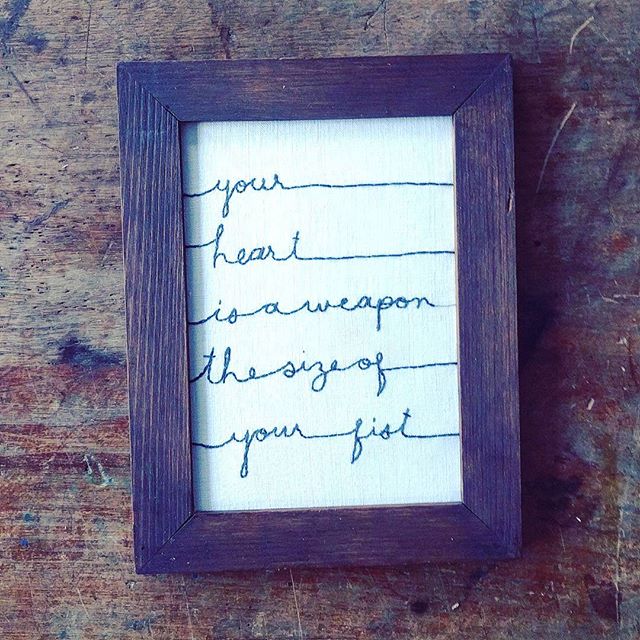 your
heart
is a weapon
the size of
your fist